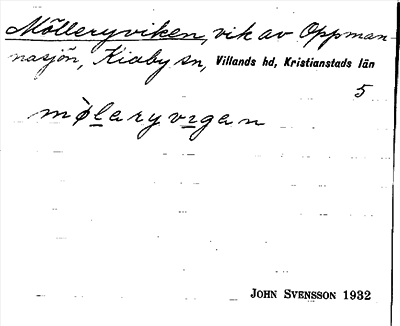 Mölleryviken, vik av Oppman-
nasjön, Kiaby sn, Villands hd, Kristianstads län
5
mølaryvigan
JOHN SVENSSON 1932